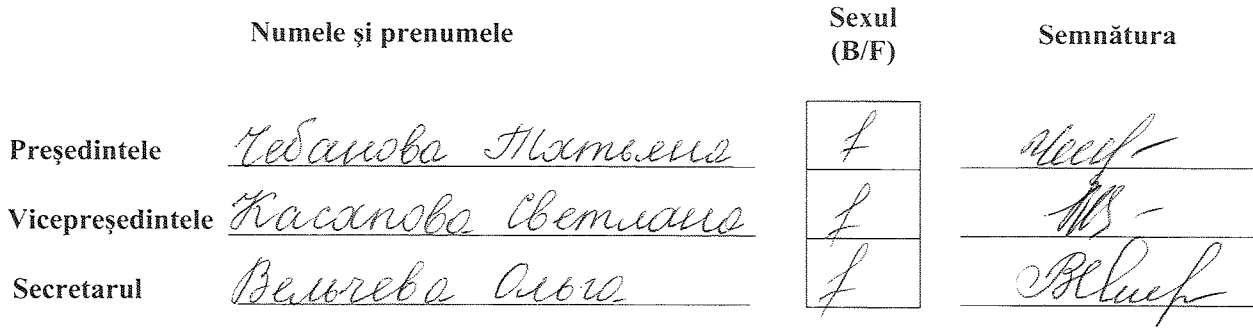 Numele și prenumele Sexul (B/F) Semnătura
Președintele Чебанова Татьяна f
Vicepreședintele Касапова Светлана f
Secretarul Вельчева Ольга f